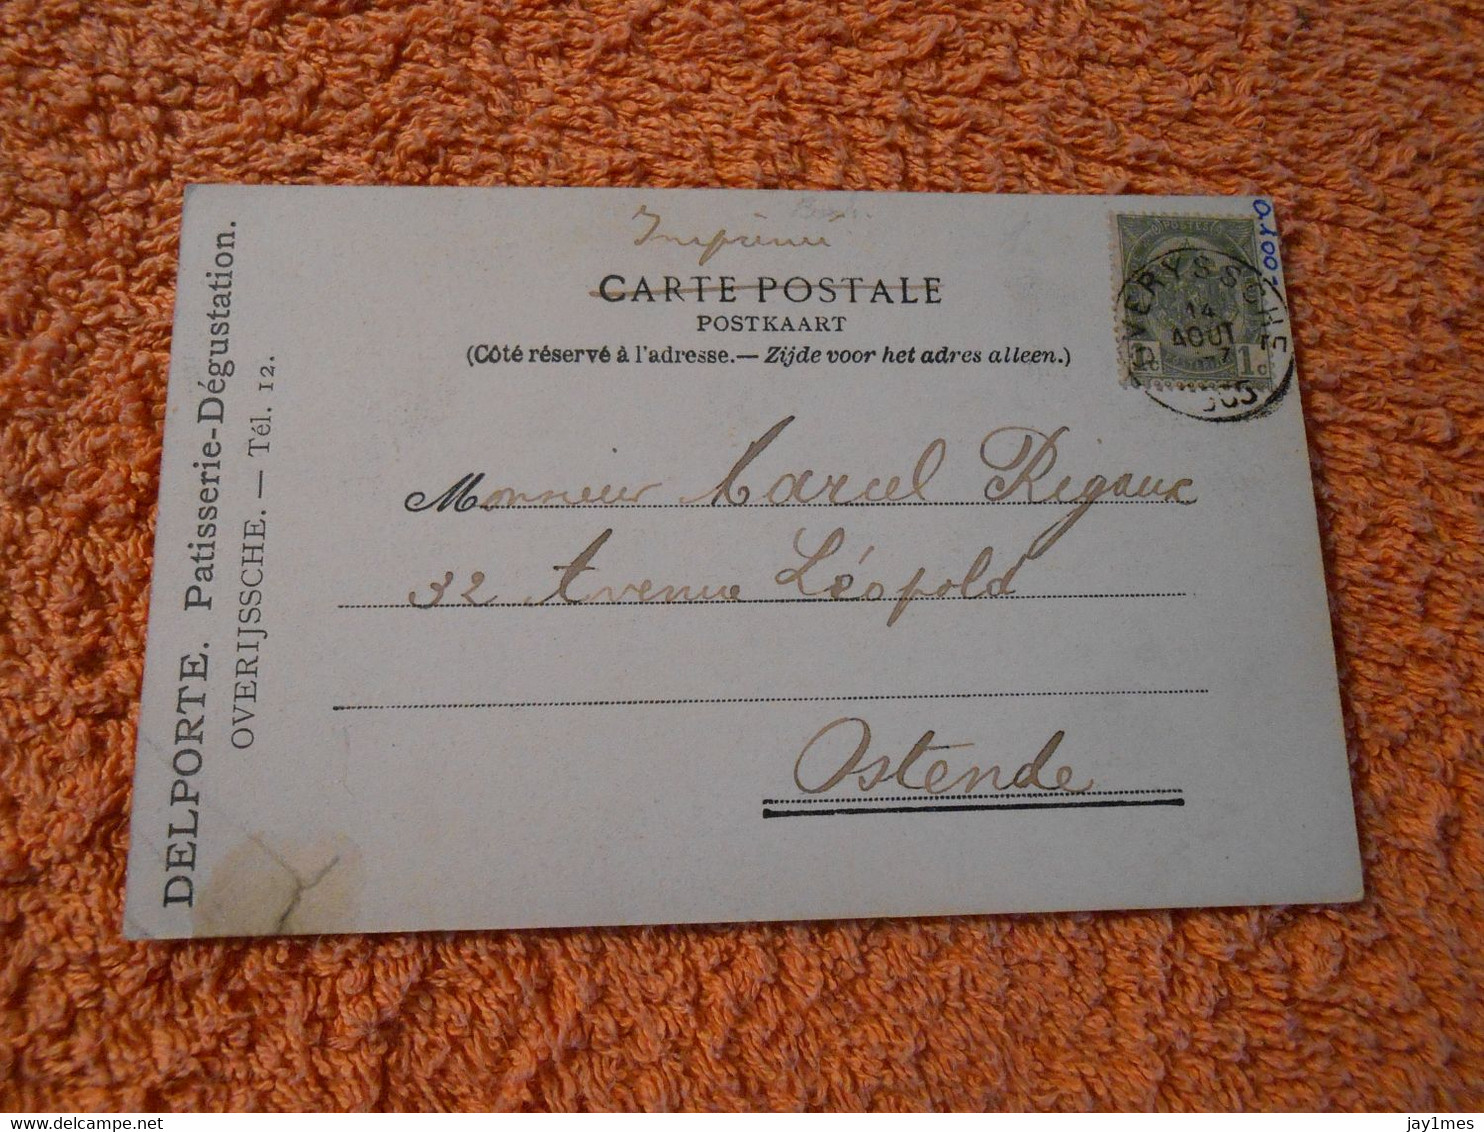 Imprimé
CARTE POSTALE
POSTKAART
(Côté réservé à l'adresse.— Zijde voor het adres alleen.)
DELPORTE. Patisserie-Dégustation.
OVERIJSSCHE. — Tél. 12.
POSTES
1c 1c
OVERYSSCHE
14
AOUT
7
Monsieur Marcel Rigaux
32 Avenue Léopold
Ostende
jay1mes